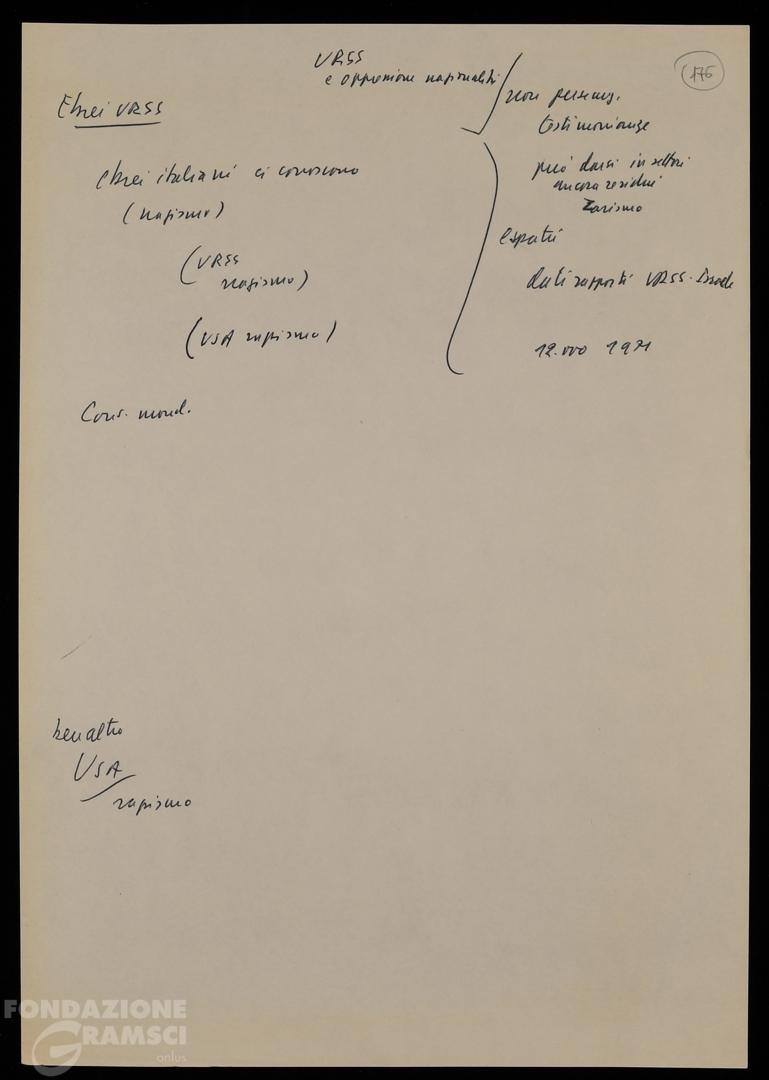 URSS
e oppressione nazionalità
176
Ebrei URSS
non persecuz.
testimonianze
può darsi in settori
ancora residui
zarismo
ebrei italiani ci conoscono
(nazismo)
(URSS
nazismo)
(USA razzismo)
espatri
dati rapporti URSS-Israele
12.000 1971
Cons. mond.
ben altro
USA
razzismo
FONDAZIONE
GRAMSCI
onlus